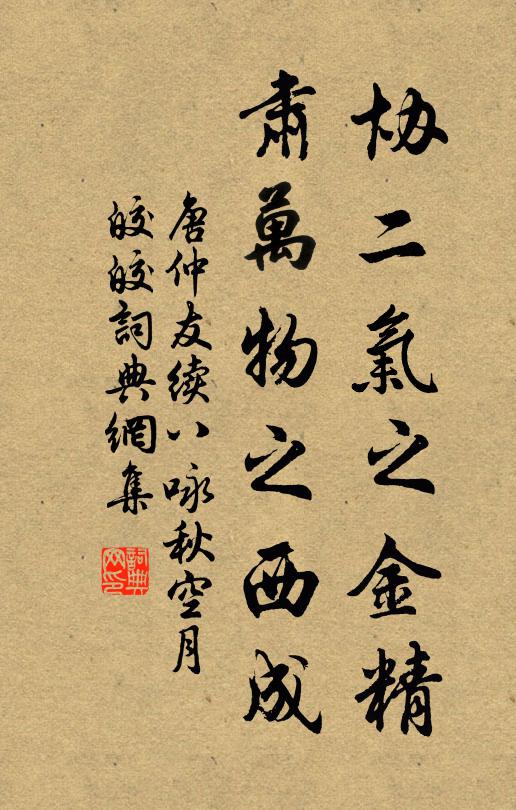 协二氣之金精
肅萬物之西成
唐仲友續八咏秋空月
皎皎詞典網集
詞典网印